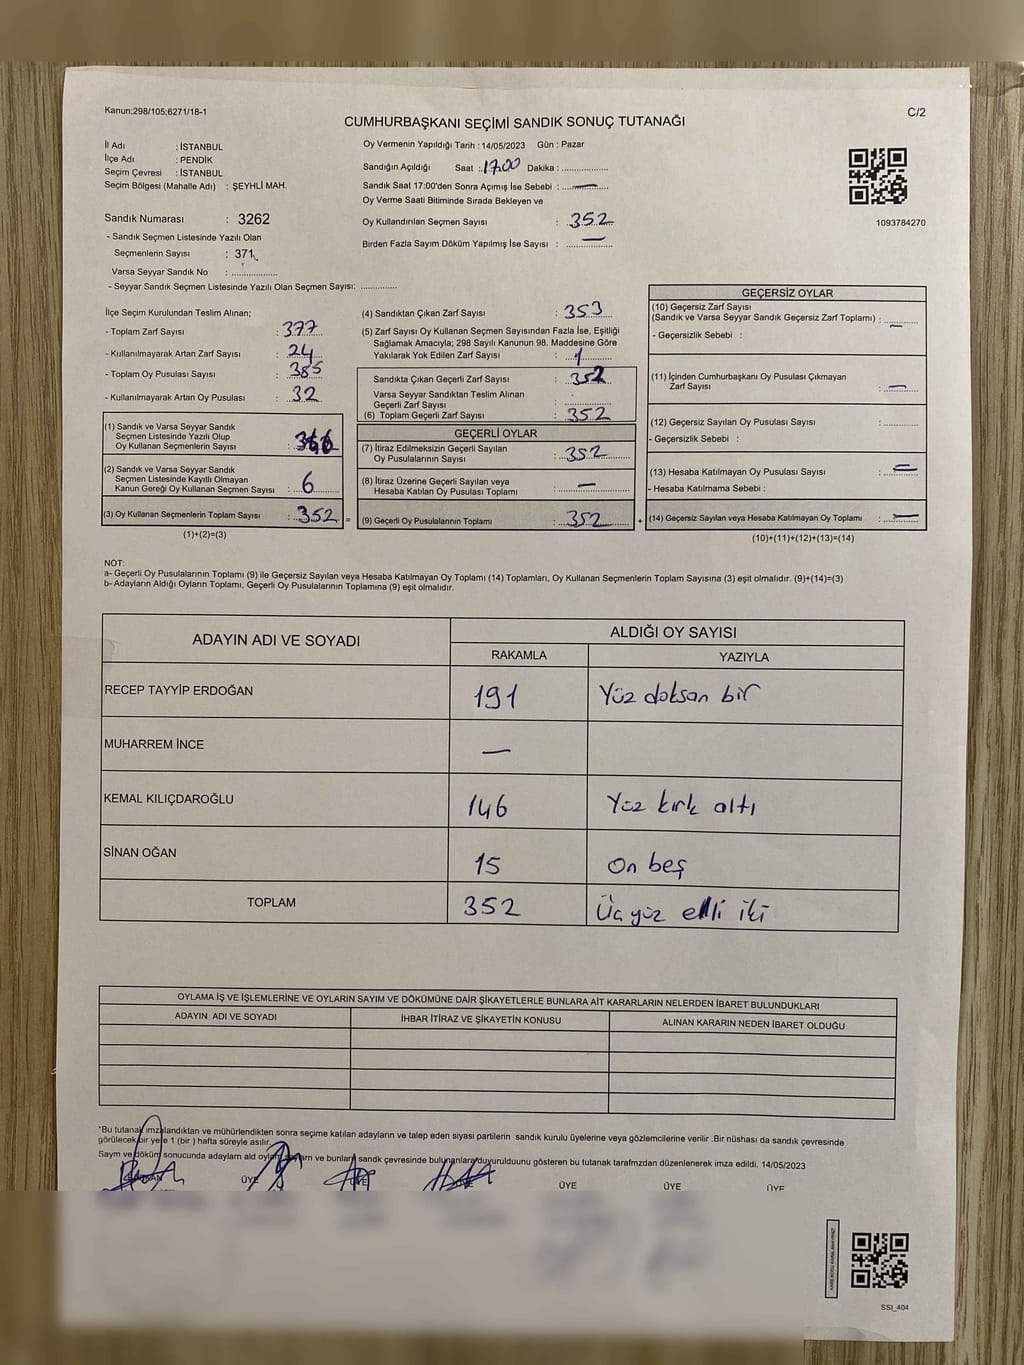 Kanun;298/105;6271/18-1
C/2
CUMHURBAŞKANI SEÇİMİ SANDIK SONUÇ TUTANAĞI
İl Adı : İSTANBUL
İlçe Adı : PENDİK
Seçim Çevresi : İSTANBUL
Seçim Bölgesi (Mahalle Adı) : ŞEYHLİ MAH.
Sandık Numarası : 3262
- Sandık Seçmen Listesinde Yazılı Olan
Seçmenlerin Sayısı : 371
Varsa Seyyar Sandık No : ..............
- Seyyar Sandık Seçmen Listesinde Yazılı Olan Seçmen Sayısı: ............
Oy Vermenin Yapıldığı Tarih : 14/05/2023 Gün : Pazar
Sandığın Açıldığı Saat : 17.00 Dakika : ..............
Sandık Saat 17:00'den Sonra Açımış İse Sebebi : —
Oy Verme Saati Bitiminde Sırada Bekleyen ve
Oy Kullandırılan Seçmen Sayısı : 352
Birden Fazla Sayım Döküm Yapılmış İse Sayısı : —
1093784270
İlçe Seçim Kurulundan Teslim Alınan;
- Toplam Zarf Sayısı : 377
- Kullanılmayarak Artan Zarf Sayısı : 24
- Toplam Oy Pusulası Sayısı : 385
- Kullanılmayarak Artan Oy Pusulası : 32
(1) Sandık ve Varsa Seyyar Sandık
Seçmen Listesinde Yazılı Olup
Oy Kullanan Seçmenlerin Sayısı :
(2) Sandık ve Varsa Seyyar Sandık
Seçmen Listesinde Kayıtlı Olmayan
Kanun Gereği Oy Kullanan Seçmen Sayısı : 6
(3) Oy Kullanan Seçmenlerin Toplam Sayısı : 352 =
(1)+(2)=(3)
(4) Sandıktan Çıkan Zarf Sayısı : 353
(5) Zarf Sayısı Oy Kullanan Seçmen Sayısından Fazla İse, Eşitliği
Sağlamak Amacıyla; 298 Sayılı Kanunun 98. Maddesine Göre
Yakılarak Yok Edilen Zarf Sayısı : 1
Sandıkta Çıkan Geçerli Zarf Sayısı : 352
Varsa Seyyar Sandıktan Teslim Alınan
Geçerli Zarf Sayısı :
(6) Toplam Geçerli Zarf Sayısı : 352
GEÇERLİ OYLAR
(7) İtiraz Edilmeksizin Geçerli Sayılan
Oy Pusulalarının Sayısı : 352
(8) İtiraz Üzerine Geçerli Sayılan veya
Hesaba Katılan Oy Pusulası Toplamı : —
(9) Geçerli Oy Pusulalarının Toplamı : 352 +
GEÇERSİZ OYLAR
(10) Geçersiz Zarf Sayısı
(Sandık ve Varsa Seyyar Sandık Geçersiz Zarf Toplamı) : —
- Geçersizlik Sebebi :
(11) İçinden Cumhurbaşkanı Oy Pusulası Çıkmayan
Zarf Sayısı : —
(12) Geçersiz Sayılan Oy Pusulası Sayısı : ............
- Geçersizlik Sebebi :
(13) Hesaba Katılmayan Oy Pusulası Sayısı : —
- Hesaba Katılmama Sebebi :
(14) Geçersiz Sayılan veya Hesaba Katılmayan Oy Toplamı : —
(10)+(11)+(12)+(13)=(14)
NOT:
a- Geçerli Oy Pusulalarının Toplamı (9) ile Geçersiz Sayılan veya Hesaba Katılmayan Oy Toplamı (14) Toplamları, Oy Kullanan Seçmenlerin Toplam Sayısına (3) eşit olmalıdır. (9)+(14)=(3)
b- Adayların Aldığı Oyların Toplamı, Geçerli Oy Pusulalarının Toplamına (9) eşit olmalıdır.
ADAYIN ADI VE SOYADI
ALDIĞI OY SAYISI
RAKAMLA YAZIYLA
RECEP TAYYİP ERDOĞAN 191 Yüz doksan bir
MUHARREM İNCE —
KEMAL KILIÇDAROĞLU 146 Yüz kırk altı
SİNAN OĞAN 15 On beş
TOPLAM 352 Üç yüz elli iki
OYLAMA İŞ VE İŞLEMLERİNE VE OYLARIN SAYIM VE DÖKÜMÜNE DAİR ŞİKAYETLERLE BUNLARA AİT KARARLARIN NELERDEN İBARET BULUNDUKLARI
ADAYIN ADI VE SOYADI İHBAR İTİRAZ VE ŞİKAYETİN KONUSU ALINAN KARARIN NEDEN İBARET OLDUĞU
*Bu tutanak imzalandıktan ve mühürlendikten sonra seçime katılan adayların ve talep eden siyasi partilerin sandık kurulu üyelerine veya gözlemcilerine verilir .Bir nüshası da sandık çevresinde
görülecek bir yere 1 (bir ) hafta süreyle asılır.
Sayım ve döküm sonucunda adayların ald oyların ve bunların sandk çevresinde bulunanlara duyurulduunu gösteren bu tutanak tarafmzdan düzenlenerek imza edildi. 14/05/2023
ÜYE ÜYE ÜYE ÜYE ÜYE ÜYE
SSI_404